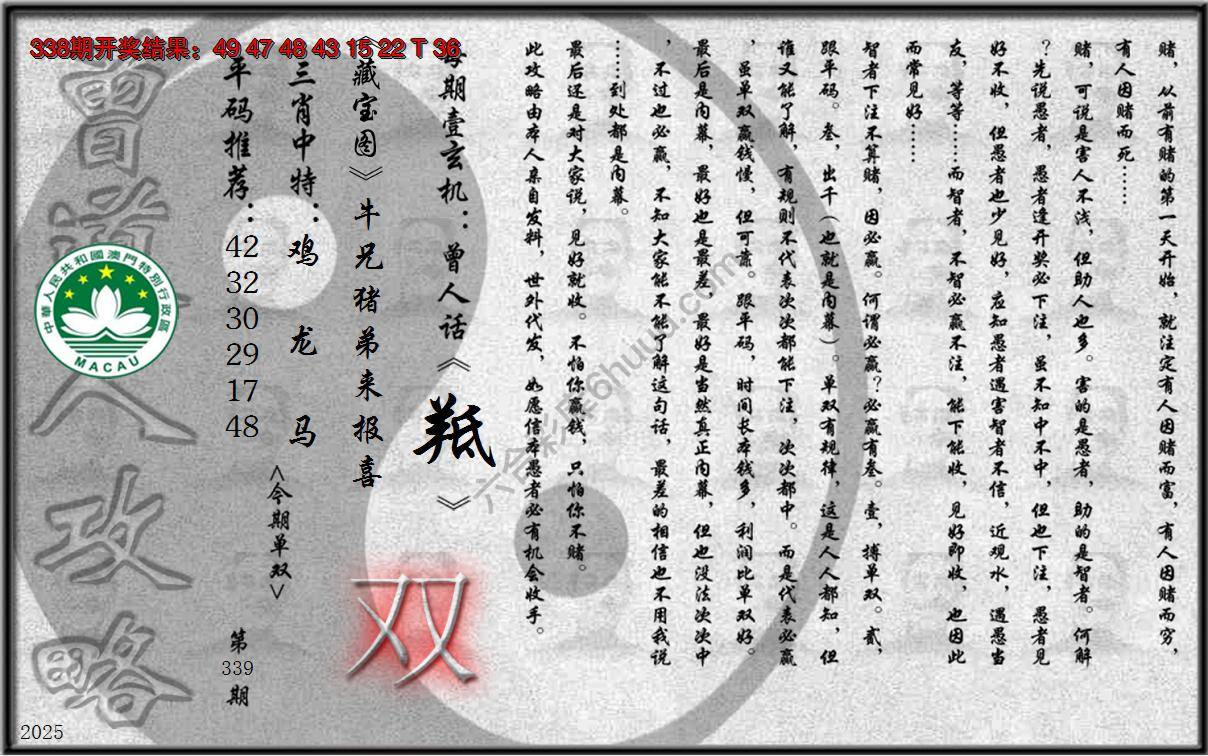 338期开奖结果：49 47 48 43 15 22 T 36
赌，从前有赌的第一天开始，就注定有人因赌而富，有人因赌而穷，
有人因赌而死……
赌，可说是害人不浅，但助人也多。害的是愚者，助的是智者。何解
？先说愚者，愚者逢开奖必下注，虽不知中不中，但也下注，愚者见
好不收，但愚者也少见好，应知愚者遇害智者不信，近观水，遇愚当
友，等等……而智者，不智必赢不注，能下能收，见好即收，也因此
而常见好……
智者下注不算赌，因必赢。何谓必赢？必赢有叁。壹，搏单双。贰，
跟平码。叁，出千（也就是内幕）。单双有规律，这是人人都知，但
谁又能了解，有规则不代表次次都能下注，次次都中。而是代表必赢
，虽单双赢钱慢，但可靠。跟平码，时间长本钱多，利润比单双好。
最后是内幕，最好也是最差，最好是当然真正内幕，但也没法次次中
，不过也必赢，不知大家能不能了解这句话，最差的相信也不用我说
……到处都是内幕。
最后还是对大家说，见好就收。不怕你赢钱，只怕你不赌。
此攻略由本人亲自发料，世外代发，如愿信本愚者必有机会收手。
每期壹玄机：曾人话《羝》
《藏宝图》牛兄猪弟来报喜
三肖中特：鸡 龙 马
平码推荐：42 32 30 29 17 48
<今期单双>
双
第339期
曾道人攻略
中華人民共和國澳門特別行政區
MACAU
六合彩库6huuu.com
2025